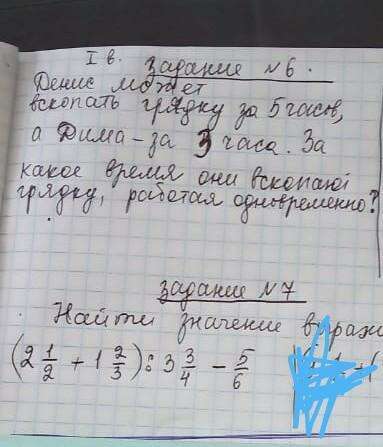 I в. Задание №6.
Денис может
вскопать грядку за 5 часов,
а Дима – за 3 часа. За
какое время они вскопают
грядку, работая одновременно?
Задание №7
Найти значение
(2 1/2 + 1 2/3) : 3 3/4 – 5/6